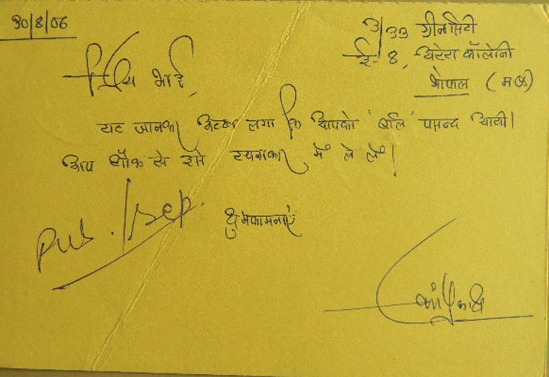 30/8/06
3/33 ग्रीनसिटी
ई-8, अरेरा कॉलोनी
भोपाल (म.प्र.)
प्रिय भाई,
यह जानकर अच्छा लगा कि आपको 'बॉल' पसन्द आयी।
आप शौक से इसे रचनाकार में ले लें।
शुभकामनाएं
Pub. / Sep.